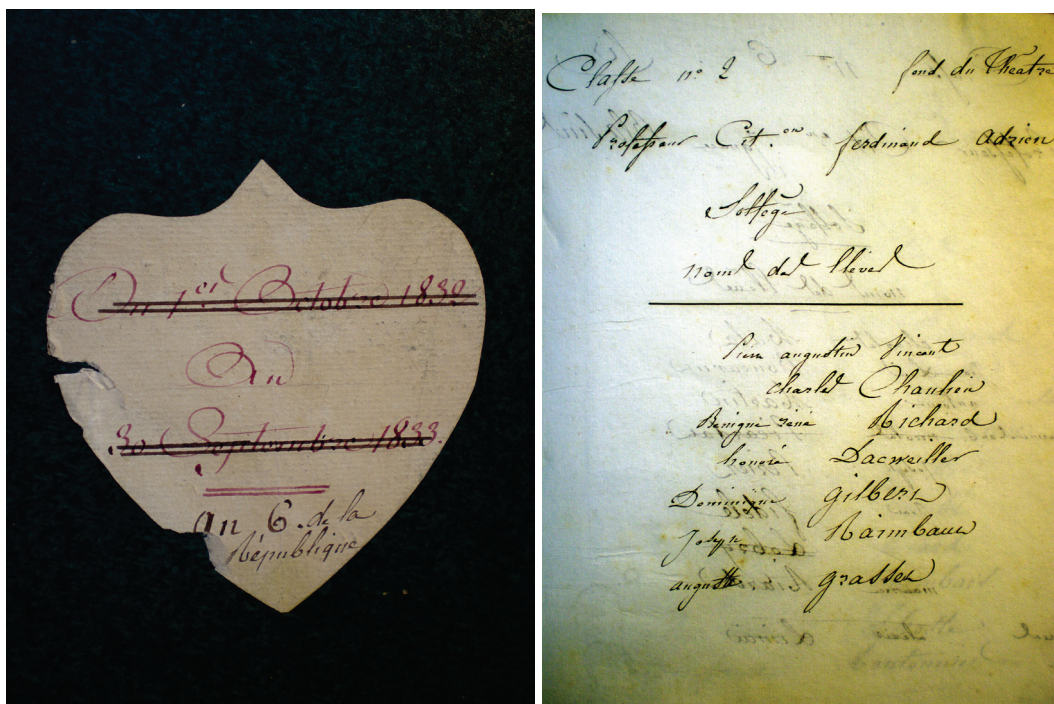 Du 1er Octobre 1832
Au
30 Septembre 1833.
An 6. de la
République
Classe nº 2 fond. du Théatre
Professeur Cit.en ferdinand adrien
Solfège
noms des Élèves
Pierre augustin Vincent
charles
Bénigne rené Richard
honoré Dacweiller
Dominique gilbert
Joseph Raimbaux
auguste grasset